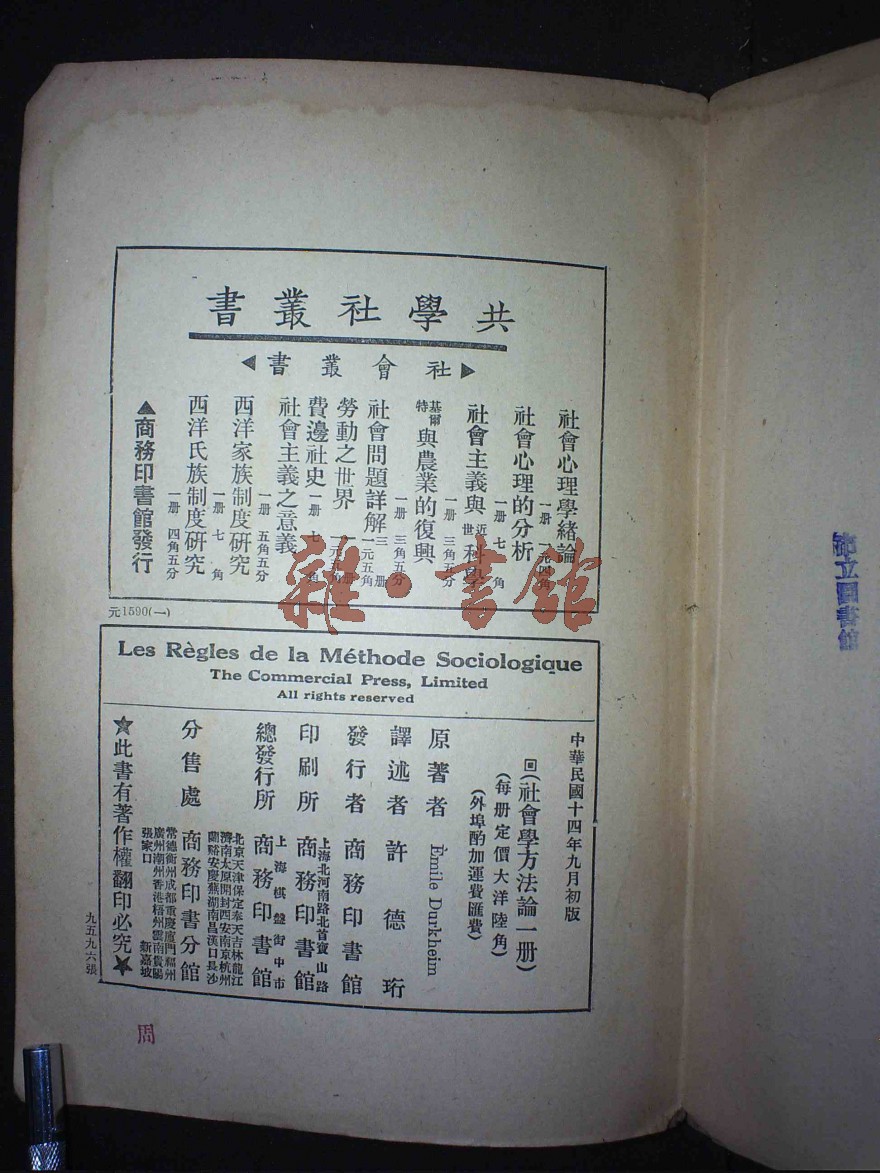 共學社叢書
▶社會叢書◀
社會心理學緒論 一册 一元四角
社會心理的分析 一册 七角
社會主義與近世科學 一册 三角五分
基爾特與農業的復興 一册 三角五分
社會問題詳解 三册 一元五角
勞動之世界 一册 一元五角
費邊社史 一册 七角
社會主義之意義 一册 五角五分
西洋家族制度研究 一册 七角
西洋氏族制度研究 一册 四角五分
▲商務印書館發行
元1590(一)
Les Règles de la Méthode Sociologique
The Commercial Press, Limited
All rights reserved
中華民國十四年九月初版
(社會學方法論一册)
(每册定價大洋陸角)
(外埠酌加運費匯費)
原著者 Émile Durkheim
譯述者 許德珩
發行者 商務印書館
印刷所 上海北河南路北首寶山路 商務印書館
總發行所 上海棋盤街中市 商務印書館
分售處 商務印書分館
北京天津保定奉天吉林龍江
濟南太原開封西安南京杭州
蘭谿安慶蕪湖南昌漢口長沙
常德衡州成都重慶廈門福州
廣州潮州香港梧州雲南貴陽
張家口 新嘉坡
★此書有著作權翻印必究★
九五九六張
周
雜·書館
立圖書館